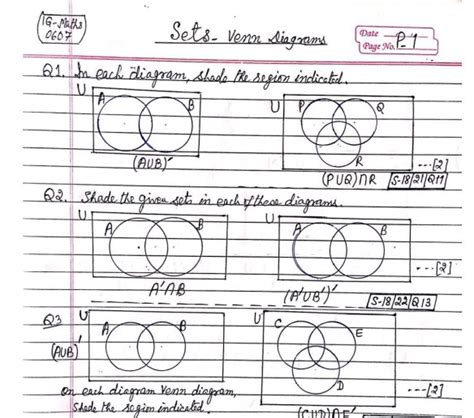 IG-Maths
0607
Sets - Venn Diagrams
Date
Page No. P-1
Q1. In each diagram, shade the region indicated.
U A B
U P Q R
(AUB)'
---[2]
(PUQ)∩R S-18/21/Q11
Q2. Shade the given sets in each of these diagrams.
U A B
U A B
---[2]
A'∩B
(A'UB')'
S-18/22/Q13
Q3
U A B
U C E D
(AUB)'
On each diagram Venn diagram,
---[2]
Shade the region indicated.
(CUD)∩E'